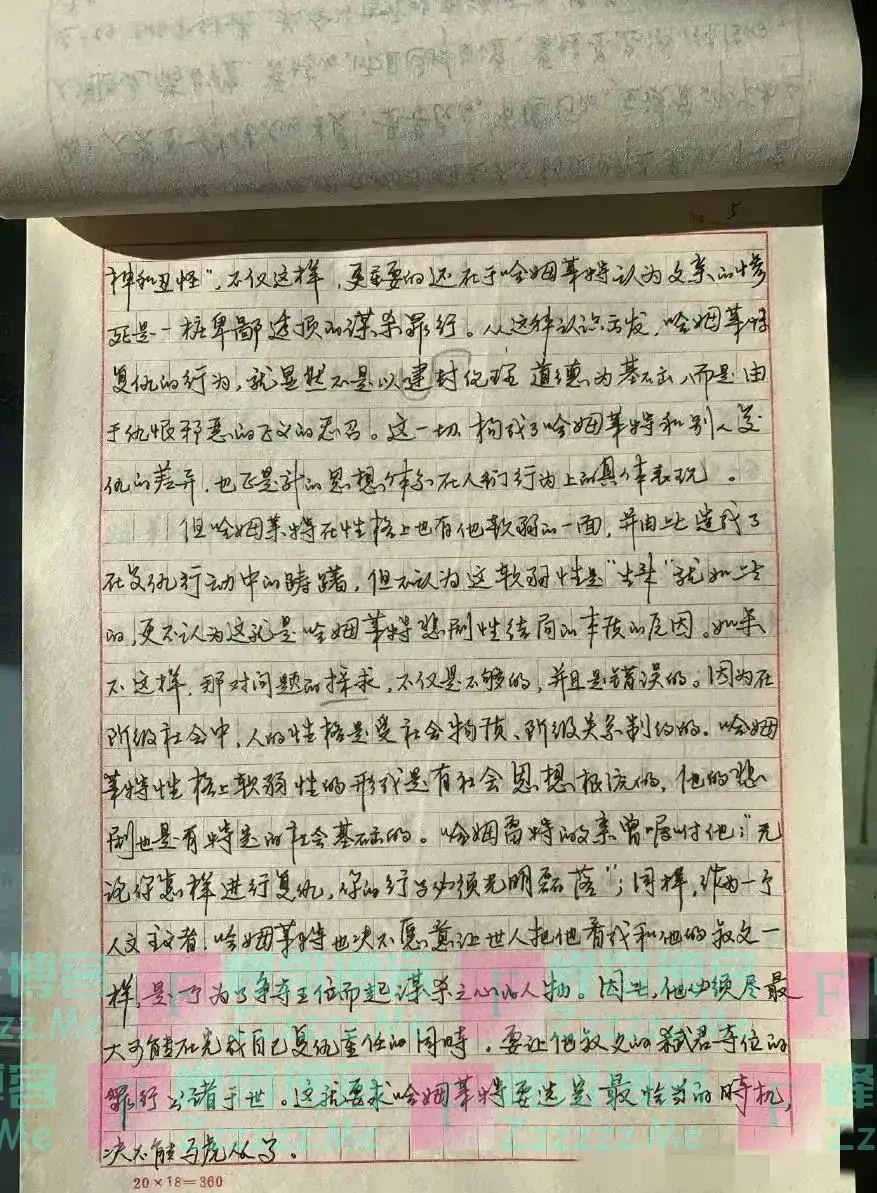 5
神和丑怪"，不仅这样，更重要的还在于哈姆莱特认为父亲的惨
死是一桩卑鄙的谋杀罪行。从这种认识出发，哈姆莱特
复仇的行为，就显然不是以封伦理道德为基础，而是由
于仇恨邪恶的正义的忍召。这一切构成了哈姆莱特和别人复
仇的差异，也正是的思想体系在人们行为上的具体表现。
但哈姆莱特在性格上也有他软弱的一面，并由此造成了
在复仇行动中的踌躇，但不认为这软弱性是"生来"就如此
的，更不认为这就是哈姆莱特悲剧性结局的本质的原因。如果
不这样，那对问题的探求，不仅是不够的，并且是错误的。因为在
阶级社会中，人的性格是受社会物质、阶级关系制约的。哈姆
莱特性格上软弱性的形成是有社会思想根源的，他的悲
剧也是有特定的社会基础的。哈姆雷特的父亲曾嘱咐他："无
论你怎样进行复仇，你的行为必须光明磊落"；同样，作为一个
人文主义者，哈姆莱特也决不愿意让世人把他看成和他的叔父一
样，是个为了争夺王位而起谋杀之心的人物。因此，他必须尽最
大可能在完成自己复仇重任的同时，要让他叔父的弑君夺位的
罪行公诸于世。这就要求哈姆莱特要选定最恰当的时机，
决不能马虎从事。
20×18=360
蜂博客
Zzzzz.Me